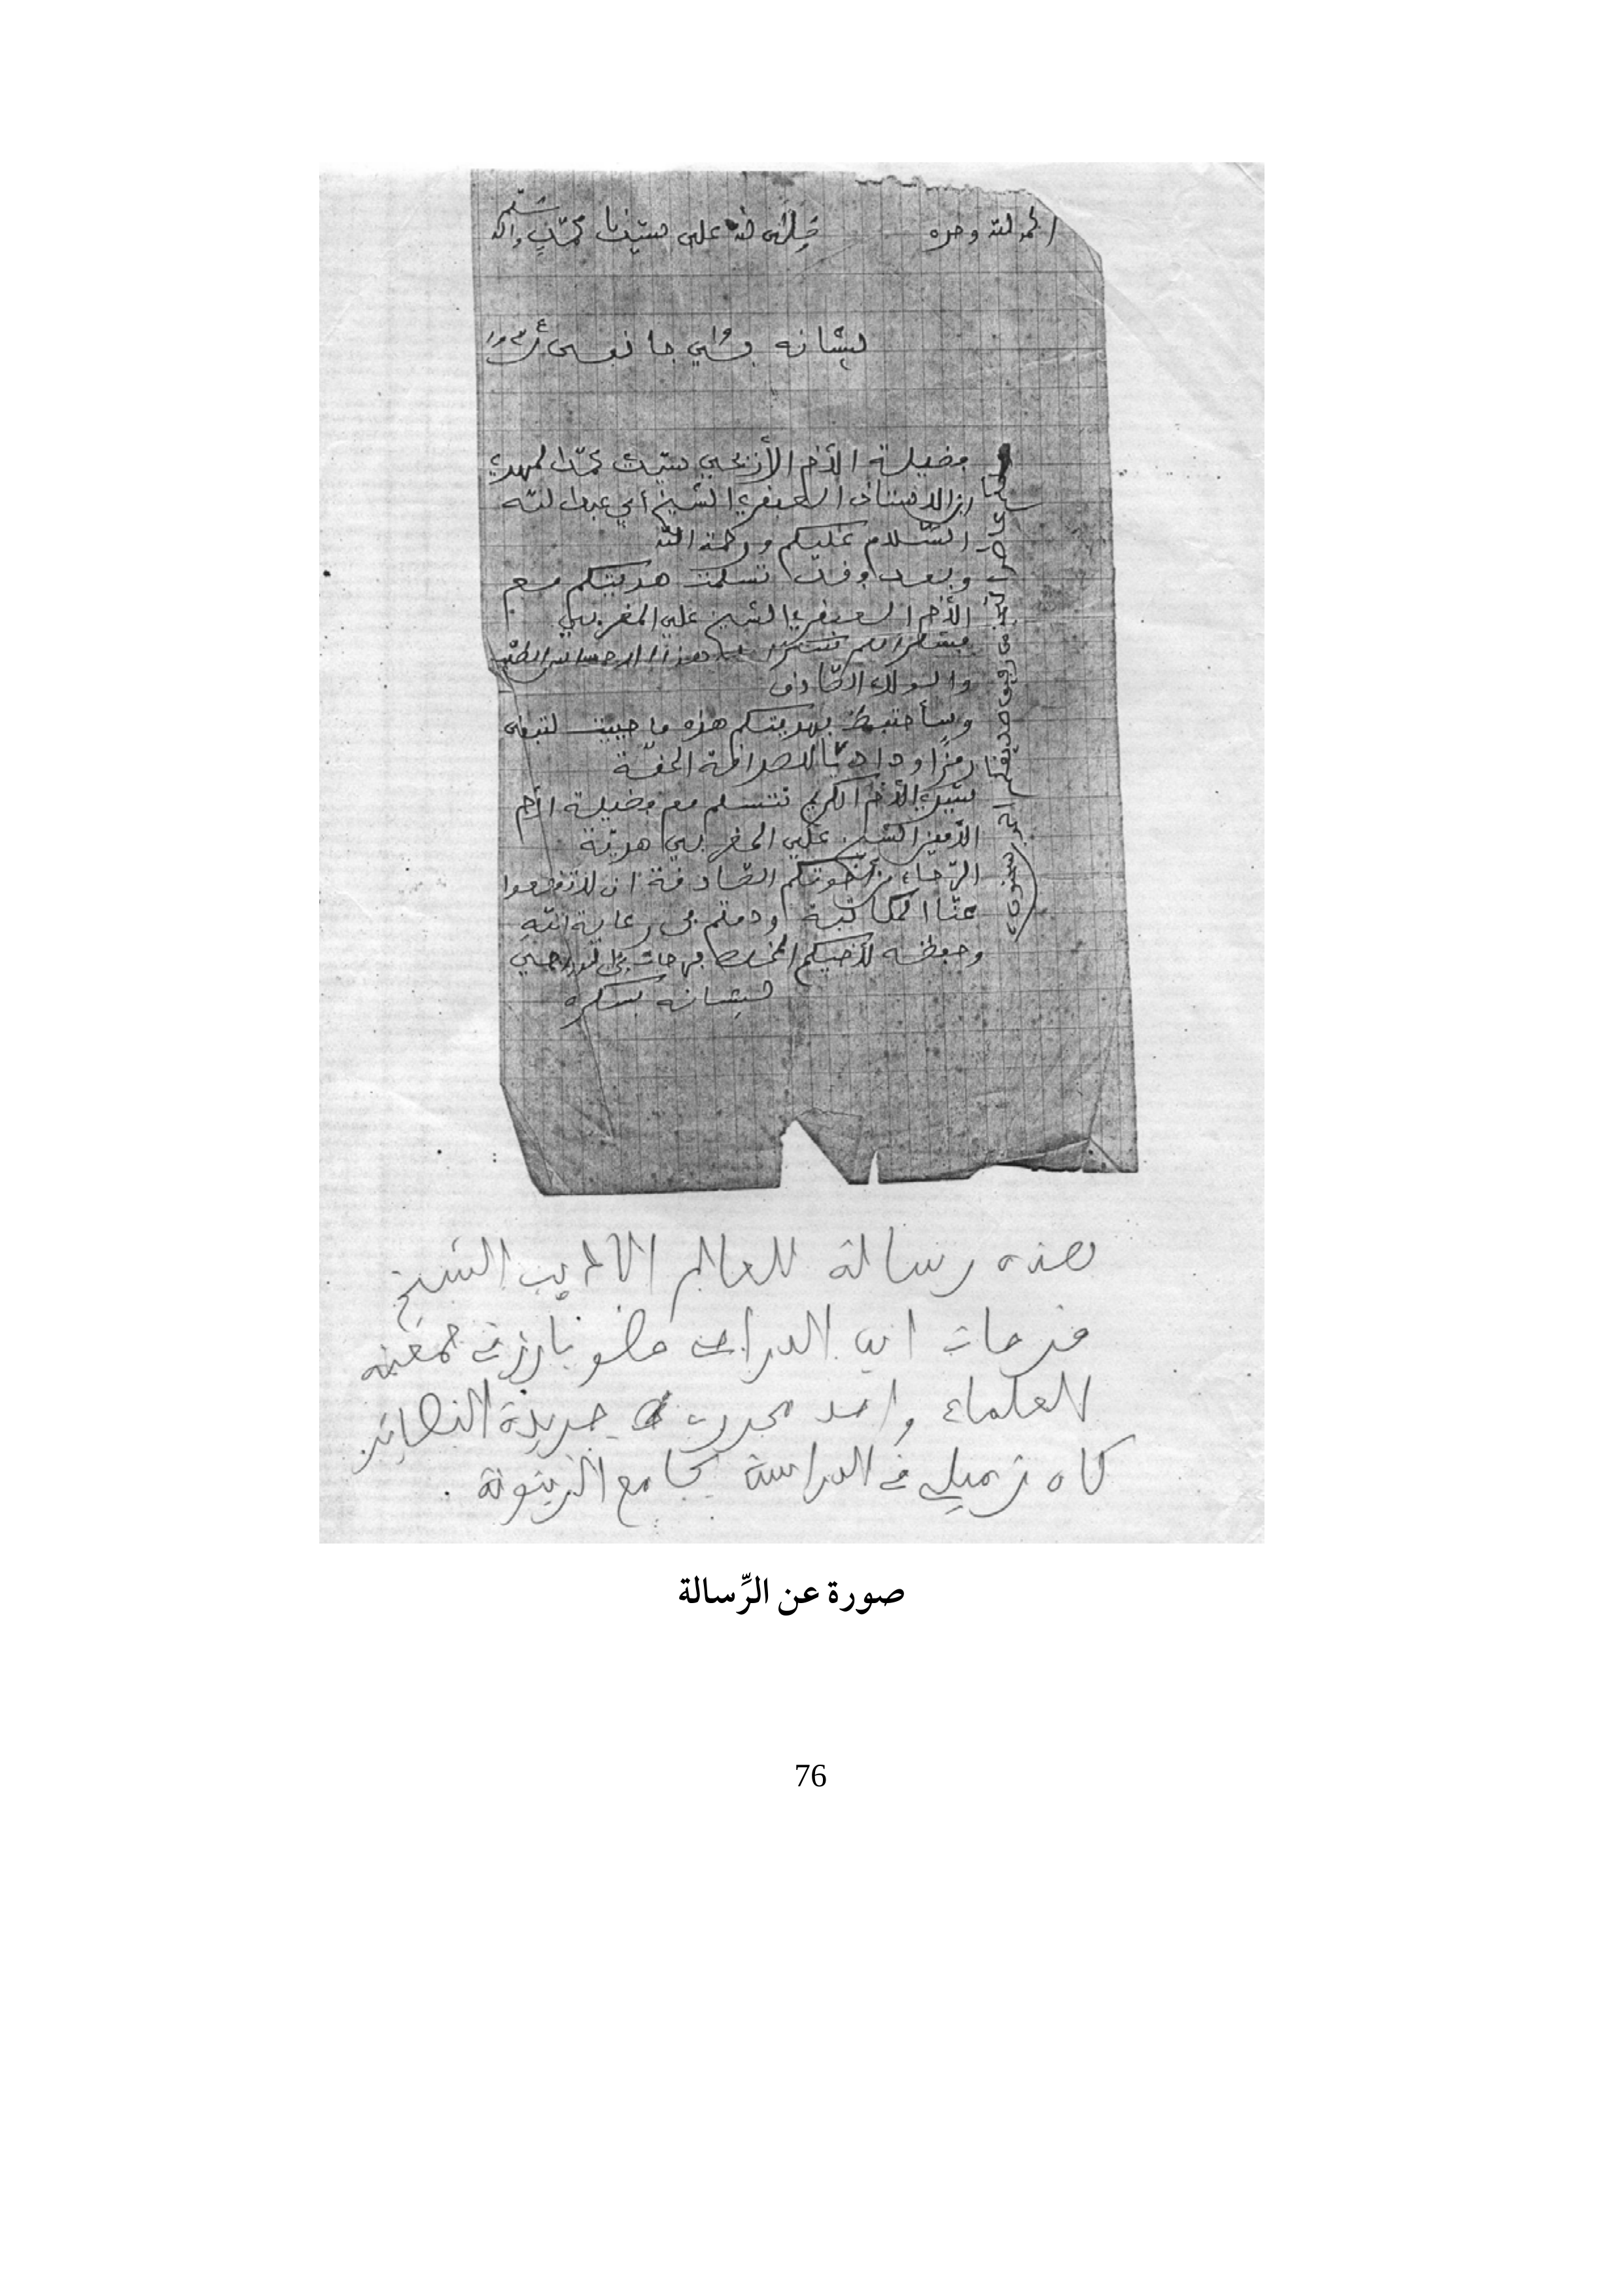 الحمد لله وحده صلى الله على سيدنا محمد وآله وسلم
ليشانه في جانفي
فضيلة الأخ الأريحي سيدي محمد المهدي
ابن الأستاذ العبقري الشيخ أبي عبد الله
السّلام عليكم ورحمة الله
وبعد فقد تسلمت هديتكم مع
الأخ العبقري الشيخ علي المغربي
فشكرا لكم شكرا هذا الإحساس الطيّب
والولاء الصّادق
وسأحتفظ بهديتكم هذه ما حييت لتبقى
رمزًا وداديًّا للصداقة الحقّة
سيدي الأخ الكريم تتسلم مع فضيلة الأخ
الشيخ علي المغربي هديّة
الرّجاء من أخوتكم الصّادقة ان لا تقطعوا
عنّا المكاتبة ودمتم في رعاية الله
وحفظه لأخيكم المخلص فرحات بن الدراجي
ليشانه بسكره
هذه رسالة للعالم الأديب الشيخ
فرحات ابن الدراجي عضو بارز في جمعية
العلماء واحد محرري جريدة البصائر
كان زميلي في الدراسة بجامع الزيتونة .
صورة عن الرِّسالة
76